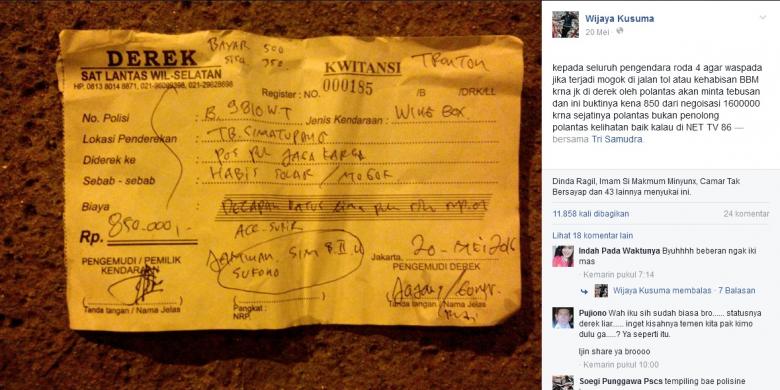 DEREK
SAT LANTAS WIL-SELATAN
HP: 0813 8014 8871, 021-96098398, 021-98628299
BAYAR 500
350
KWITANSI
TRONTON
Register : NO. 000185 /B /DRK/LL
No. Polisi : B. 9810 WT Jenis Kendaraan : WING BOX
Lokasi Penderekan : TB. SIMATUPANG
Diderek ke : POS PJR JAGA KARSA
Sebab - sebab : HABIS SOLAR / MOGOK
Biaya : DELAPAN RATUS LIMA
Rp. 850.000,-
JAMINAN, SIM B.II.U
SUKONO
Jakarta, 20 - MEI 2016
PENGEMUDI / PEMILIK
KENDARAAN
PENGEMUDI DEREK
Tanda tangan / Nama Jelas
Pangkat :
NRP.
Tanda tangan / Nama Jelas
Wijaya Kusuma
20 Mei ·
kepada seluruh pengendara roda 4 agar waspada
jika terjadi mogok di jalan tol atau kehabisan BBM
krna jk di derek oleh polantas akan minta tebusan
dan ini buktinya kena 850 dari negoisasi 1600000
krna sejatinya polantas bukan penolong
polantas kelihatan baik kalau di NET TV 86 —
bersama Tri Samudra.
Dinda Ragil, Imam Si Makmum Minyunx, Camar Tak
Bersayap dan 43 lainnya menyukai ini.
11.858 kali dibagikan 24 komentar
Lihat 18 komentar lain
Indah Pada Waktunya Byuhhhh beberan ngak iki
mas
Kemarin pukul 7:14
Wijaya Kusuma membalas · 7 Balasan
Pujiono Wah iku sih sudah biasa bro...... statusnya
derek liar...... inget kisahnya temen kita pak kimo
dulu ga.....? Ya seperti itu.
Ijin share ya broooo
Kemarin pukul 10:00
Soegi Punggawa Pscs tempiling bae polisine